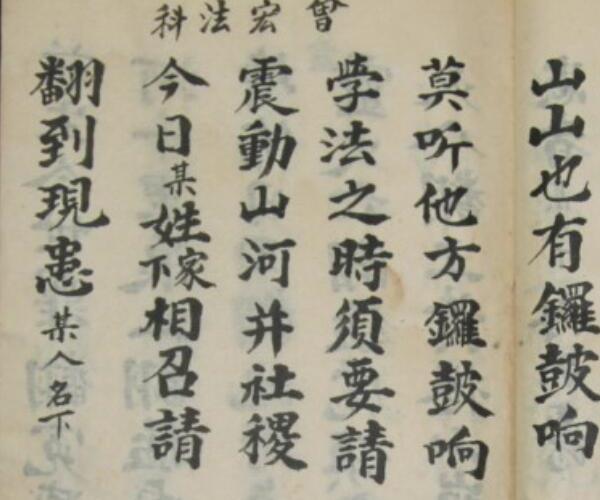 會宏法科
山山也有鑼鼓响
莫听他方鑼鼓响
学法之時須要請
震動山河并社稷
今日某姓家下相召請
翻到現患某人名下